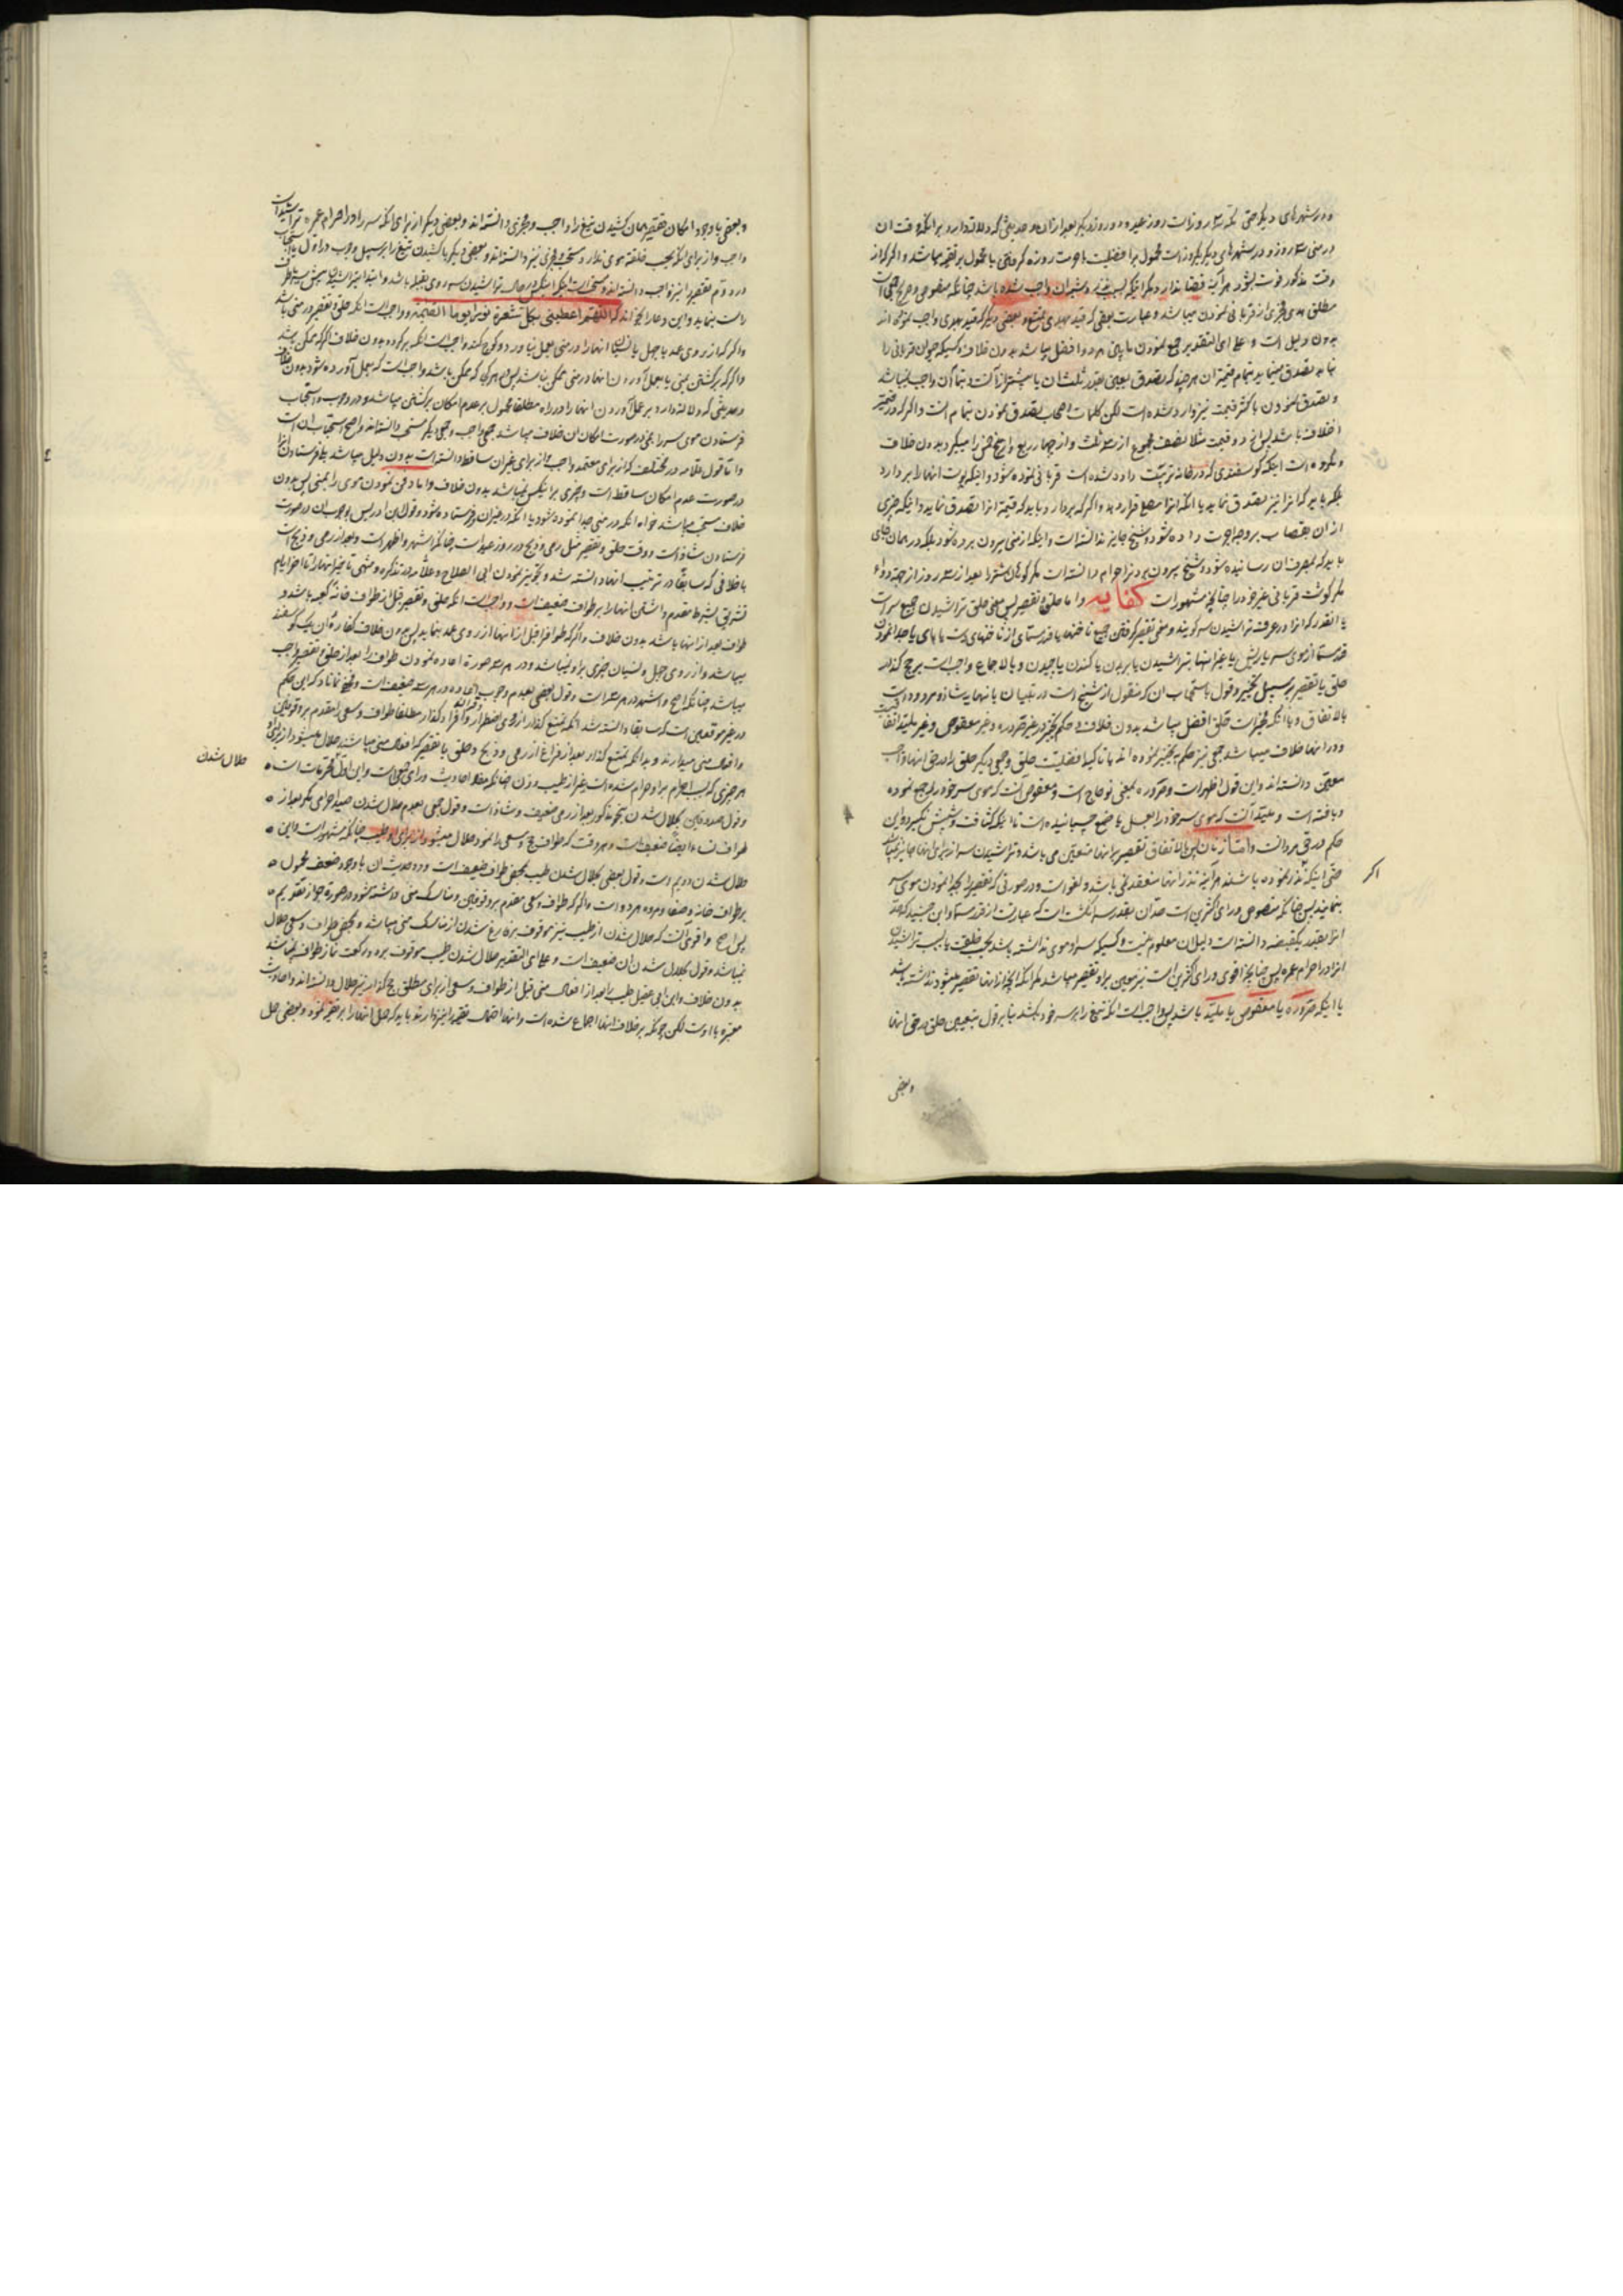 و در شهرهای دیگر حتی مکه سه روز است روز عید و دو روز دیگر بعد از آن و حدیثی که دلالة دارد بر آنکه وقت آن
در منی سه روز و در شهرهای دیگر یکروز است محمول بر افضلیت یا حرمت روزه گرفتن یا محمول بر تقیه میباشد و اگر که از
وقت مذکور فوت بشود هر آینه قضا ندارد مگر اینکه بسبب نذر و شبه آن واجب شده باشد چنانکه
مطلق هدی مجزی از قربانی نمودن میباشد و عبارت بعضی که قید بهدی تمتع و بعضی دیگر که قید بهدی واجب نموده اند
بدون دلیل است و علی ای التقدیر جمع نمودن مابین هر دو افضل میباشد بدون خلاف و کسیکه حیوان قربانی را
نیابد تصدق مینماید بتمام قیمت آن هر چند که تصدق ببعض بقدر ثلث آن یا بیشتر از آنست و تمام آن واجب نمیباشد
و تصدق نمودن باکثر قیمت نیز وارد شده است لکن کلمات اصحاب تصدق نمودن بتمام است و اگر که در قیمة
اختلاف باشد پس از دو قیمت مثلا نصف مجموع از سه ثلث و از چهار ربع و از پنج خمس را میگیرد بدون خلاف
و مکروه است اینکه گوسفندی که در خانه تربیت داده شده است قربانی نموده شود و اینکه پوست آنها را بردارد
بلکه باید که آنرا نیز تصدق نماید یا آنکه آنرا مصلی قرار دهد و اگر که بردارد باید که قیمة آنرا تصدق نماید و اینکه چیزی
از آن بقصاب بر وجه اجرت داده شود و شیخ جایز ندانسته است و اینکه از منی بیرون برده شود بلکه در همان جای
باید که بمصرف آن رسانیده شود و شیخ بیرون بردن را حرام دانسته است مگر کوهان شتر را بعد از سه روز از جهة دواء
مگر گوشت قربانی غیر خود را چنانچه مشهور است کفایه و اما حلق و تقصیر پس معنی حلق تراشیدن جمیع سر است
یا آنقدر که آنرا در عرف تراشیدن سر گویند و معنی تقصیر گرفتن جمیع ناخنها یا قدر مسمای از ناخنهای دست یا پای یا جدا نمودن
قدر مسما از موی سر یا ریش یا غیر آنها بتراشیدن یا بریدن یا کندن یا چیدن و بالاجماع واجب است بر حج گذار
حلق یا تقصیر بر سبیل تخییر و قول باستحباب آن که منقول از شیخ است در تبیان یا نهایت شاذ و مردود است
بالاتفاق و با آنکه مخیر است حلق افضل میباشد بدون خلاف و حکم تخییر در غیر صروره و غیر معقوص و غیر ملبد اتفاقیست
و در آنها خلاف میباشد جمعی نیز حکم بتخییر نموده اند با تاکید افضلیت حلق و جمعی دیگر حلق را در حق آنها واجب
معین دانسته اند و این قول اظهر است و صروره بمعنی نو حاج است و معقوص آنست که موی سر خود را جمع نموده
و بافته است و ملبد آنست که موی سر خود را بعسل یا صمغ چسبانیده است تا اینکه کثافت و شپش نگیرد و این
حکم در حق مردانست و اما زنان پس بالاتفاق تقصیر بر آنها متعین می باشد و تراشیدن سر از برای آنها جایز نمیباشد
حتی اینکه نذر نموده باشند هر آینه نذر آنها منعقد نمی باشد و لغو است و در صورتی که تقصیر را بجدا نمودن موی سر
بنمایند پس چنانکه منصوص و رای اکثرین است حد آن بقدر سر انگشت است که عبارت از قدر مسما و ابن جنید که حد
آنرا بقدر یکقبضه دانسته است دلیل آن معلوم نیست و کسیکه سر او موی نداشته باشد بحسب خلقت یا بسبب تراشیدن
آنرا در احرام عمره پس چنانچه اقوی و رای اکثرین است نیز معین بر او تقصیر میباشد مگر آنکه آنچه از آنها تقصیر میشود نداشته باشد
یا اینکه صروره یا معقوص یا ملبد باشد پس واجب است آنکه تیغ را بر سر خود بکشد بنا بر قول بتعیین حلق در حق آنها
و بعضی
اگر
و بعضی با وجود امکان تقصیر همان کشیدن تیغ را واجب و مجزی دانسته اند و بعضی دیگر از برای آنکه سر را در احرام عمره تراشیده است
واجب و از برای آنکه بحسب خلقت موی ندارد مستحب و مجزی نیز دانسته اند و بعضی دیگر با کشیدن تیغ را بر سبیل وجوب در اول یا استحباب
در دوم تقصیر را نیز واجب دانسته اند و مستحب است اینکه در حال تراشیدن سر روی بقبله باشد و ابتدا
راست بنماید و این دعا را بخواند که اللهم اعطینی بکل شعرة نورا یوم القیمة و واجب است آنکه حلق و تقصیر در منی باشد
و اگر که از روی عمد یا جهل یا نسیان آنها را در منی بعمل نیاورد و کوچ کند واجب است آنکه برگردد بدون خلاف اگر که ممکن باشد
و اگر که برگشتن بمنی یا بعمل آوردن آنها در منی ممکن نباشد پس در هر جای که ممکن باشد واجب است که بعمل آورده شود بدون خلاف
و حدیثی که دلالة دارد بر عمل آوردن آنها را در راه مطلقا محمول بر عدم امکان برگشتن میباشد و در وجوب و استحباب
فرستادن موی سر را بمنی در صورت امکان آن خلاف میباشد جمعی واجب و جمعی دیگر مستحب دانسته اند و اصح استحباب آن است
و اما قول علامه در مختلف که از برای متعمد واجب و از برای غیر آن ساقط دانسته است بدون دلیل میباشد بلی فرستادن آن را
در صورت عدم امکان ساقط است و چیزی بر اینکس نمیباشد بدون خلاف و اما دفن نمودن موی را بمنی پس بدون
خلاف مستحب میباشد خواه آنکه در منی جدا نموده شود یا آنکه در غیر آن و فرستاده شود و قول
فرستادن شاذ است و وقت حلق و تقصیر مثل رمی و ذبح در روز عید است چنانکه اشهر و اظهر است و بعد از رمی و ذبح است
با خلافی که سابقا در ترتیب آنها دانسته شد و تجویز نمودن ابی الصلاح و علامه در تذکره و منتهی تاخیر آنها را تا آخر ایام
تشریق بشرط مقدم داشتن آنها را بر طواف ضعیف است و واجب است آنکه حلق و تقصیر قبل از طواف خانه کعبه باشد و
طواف بعد از آنها باشد بدون خلاف و اگر که طواف را قبل از آنها از روی عمد بنماید پس بدون خلاف کفاره آن یک گوسفند
میباشد و از روی جهل و نسیان چیزی بر او نمیباشد و در هر سه صورة اعاده نمودن طواف را بعد از حلق و تقصیر واجب
میباشد چنانکه اصح و اشهر در هر سه است و قول بعضی بعدم وجوب اعاده در هر سه ضعیف است و مخفی نماناد که این حکم
در غیر موقعین است که سابقا دانسته شد آنکه تمتع گذار از روی اضطرار و قران و افراد گذار مطلقا طواف و سعی را مقدم بر وقوفین
و افعال منی میدارند و بدانکه تمتع گذار بعد از فراغ از رمی و ذبح و حلق یا تقصیر که افعال منی میباشند حلال میشود از برای او
هر چیزی که بسبب احرام بر او حرام شده است بغیر از طیب و زن چنانکه مفاد احادیث و رای جمعی است و این اول محرمات است
و قول صدوقین بحلال شدن بنحو مذکور بعد از رمی ضعیف و شاذ است و قول جمعی بعدم حلال شدن صید احرامی مگر بعد از
طواف نساء ایضا ضعیف است و هر وقت که طواف حج و سعی را نمود حلال میشود از برای او طیب چنانکه مشهور است و این
حلال شدن دویم است و قول بعضی بحلال شدن طیب بمحض طواف ضعیف است و دو حدیث آن با وجود ضعف محمول
بر طواف خانه و صفا و مروه هر دو است و اگر که طواف و سعی مقدم بر وقوفین و مناسک منی داشته شود در صورة جواز تقدیم
پس اصح و اقوی آنست که حلال شدن از طیب نیز موقوف بفارغ شدن از مناسک منی میباشد و بمحض طواف و سعی حلال
نمیباشد و قول بحلال شدن آن ضعیف است و علی ای التقدیر حلال شدن طیب موقوف بر دو رکعت نماز طواف نمیباشد
بدون خلاف و ابن ابی عقیل طیب را بعد از افعال منی قبل از طواف و سعی از برای مطلق حج گذار نیز حلال دانسته اند و احادیث
معتبره با اوست لکن چونکه بر خلاف آنها اجماع شده است و آنها احتمال تقیه را نیز دارند باید که حمل آنها را بر تقیه نمود و بعضی حمل
حلال شدن